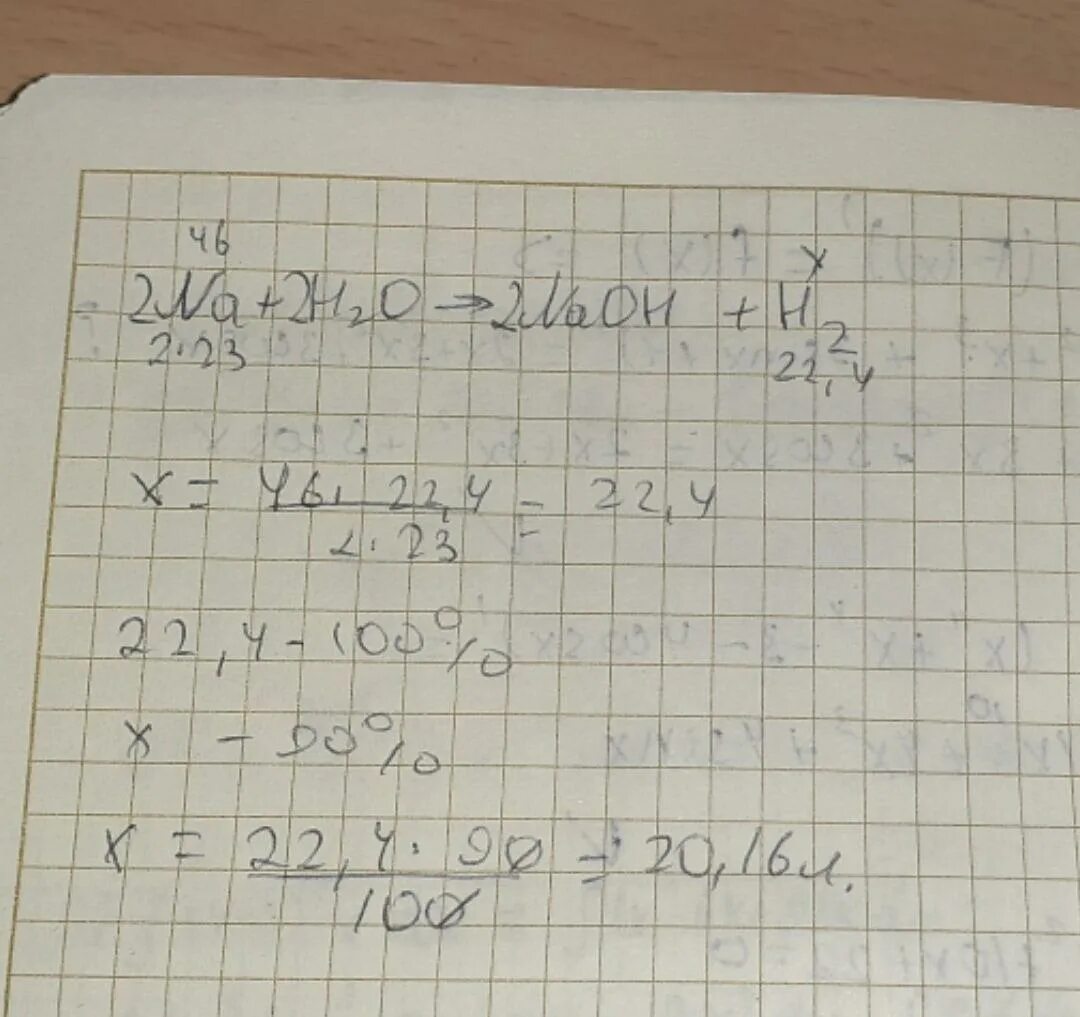 46 x
2Na + 2H₂O → 2NaOH + H₂
2·23 22,4
x = 46·22,4 / 2·23 = 22,4
22,4 - 100%
x - 90%
x = 22,4·90 / 100 = 20,16 л.